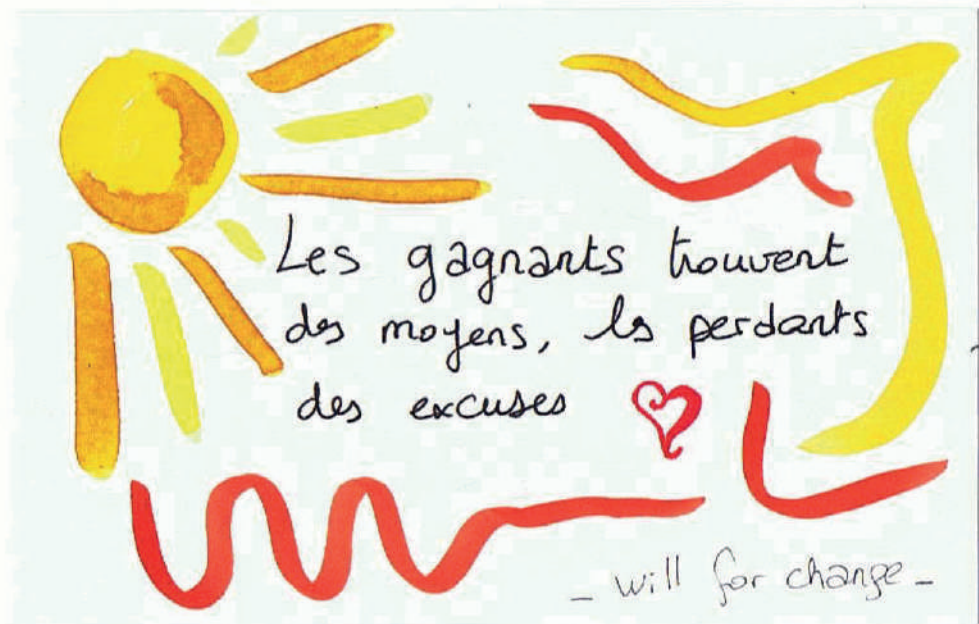 Les gagnants trouvent
des moyens, les perdants
des excuses
_ will for change _